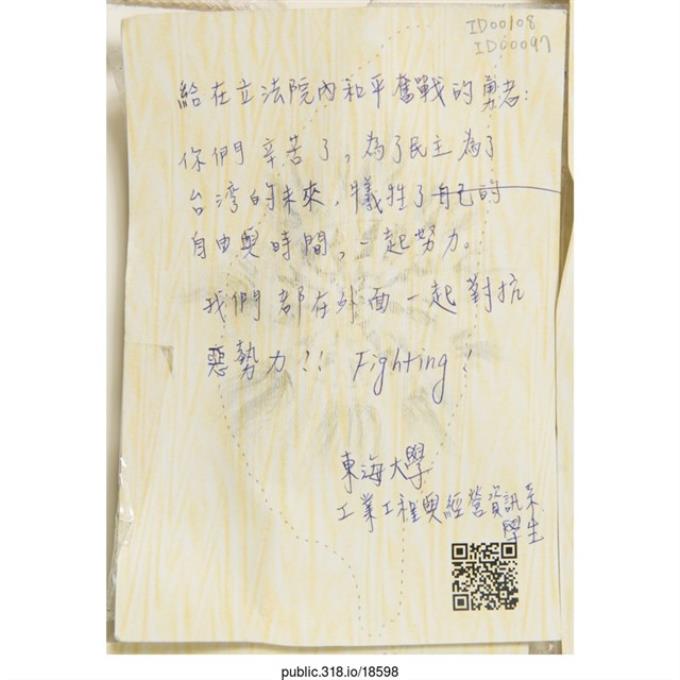 ID00108
ID00097
給在立法院內和平奮戰的勇者:
你們辛苦了,為了民主為了
台灣的未來,犧牲了自己的
自由與時間,一起努力。
我們都在外面一起對抗
惡勢力!! Fighting!
東海大學
工業工程與經營資訊系
學生
public.318.io/18598